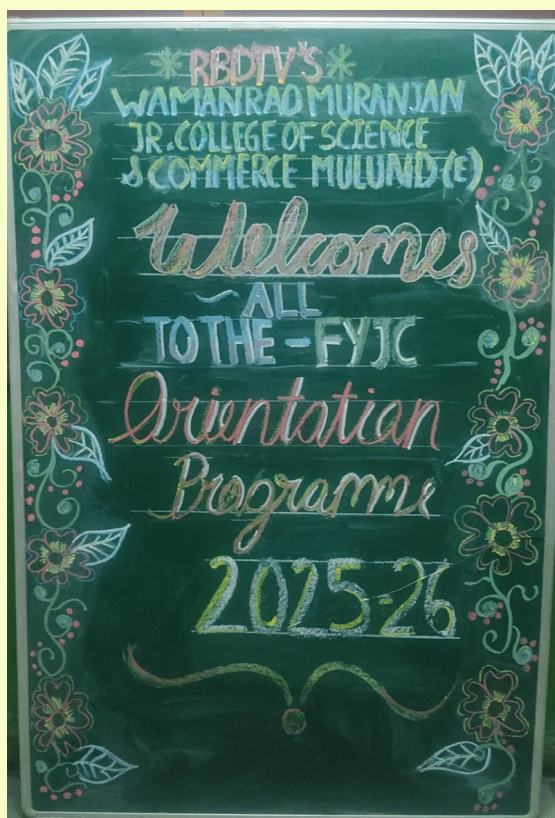 RBDTV'S
WAMANRAO MURANJAN
JR. COLLEGE OF SCIENCE
& COMMERCE MULUND (E)
Welcomes
~ ALL
TO THE - FYJC
Orientation
Programme
2025-26